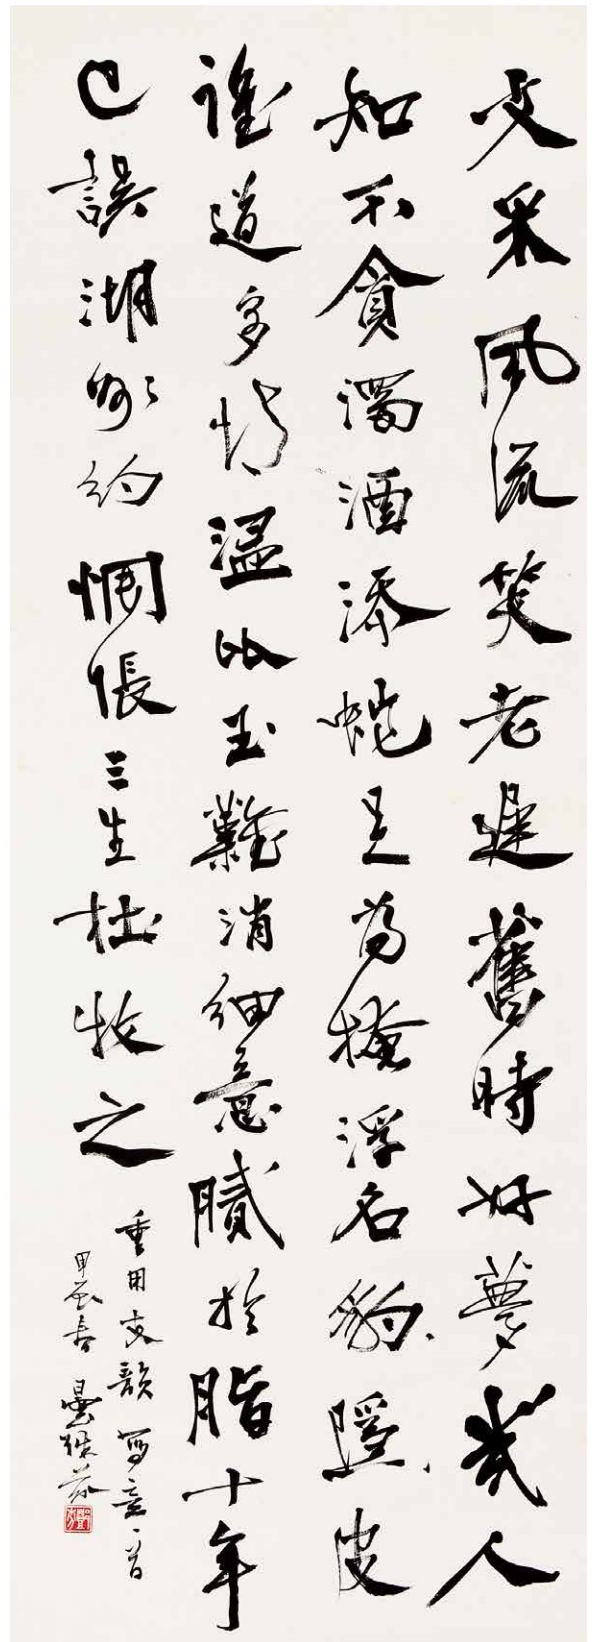 文采風流笑老遲舊時好夢幾人
知不貪濁酒添蛇足為掩浮名豹隱皮
誰道多情溫比玉難消細意膩於脂十年
已誤湖州約惆悵三生杜牧之
重用支韻寫意一首
甲辰春